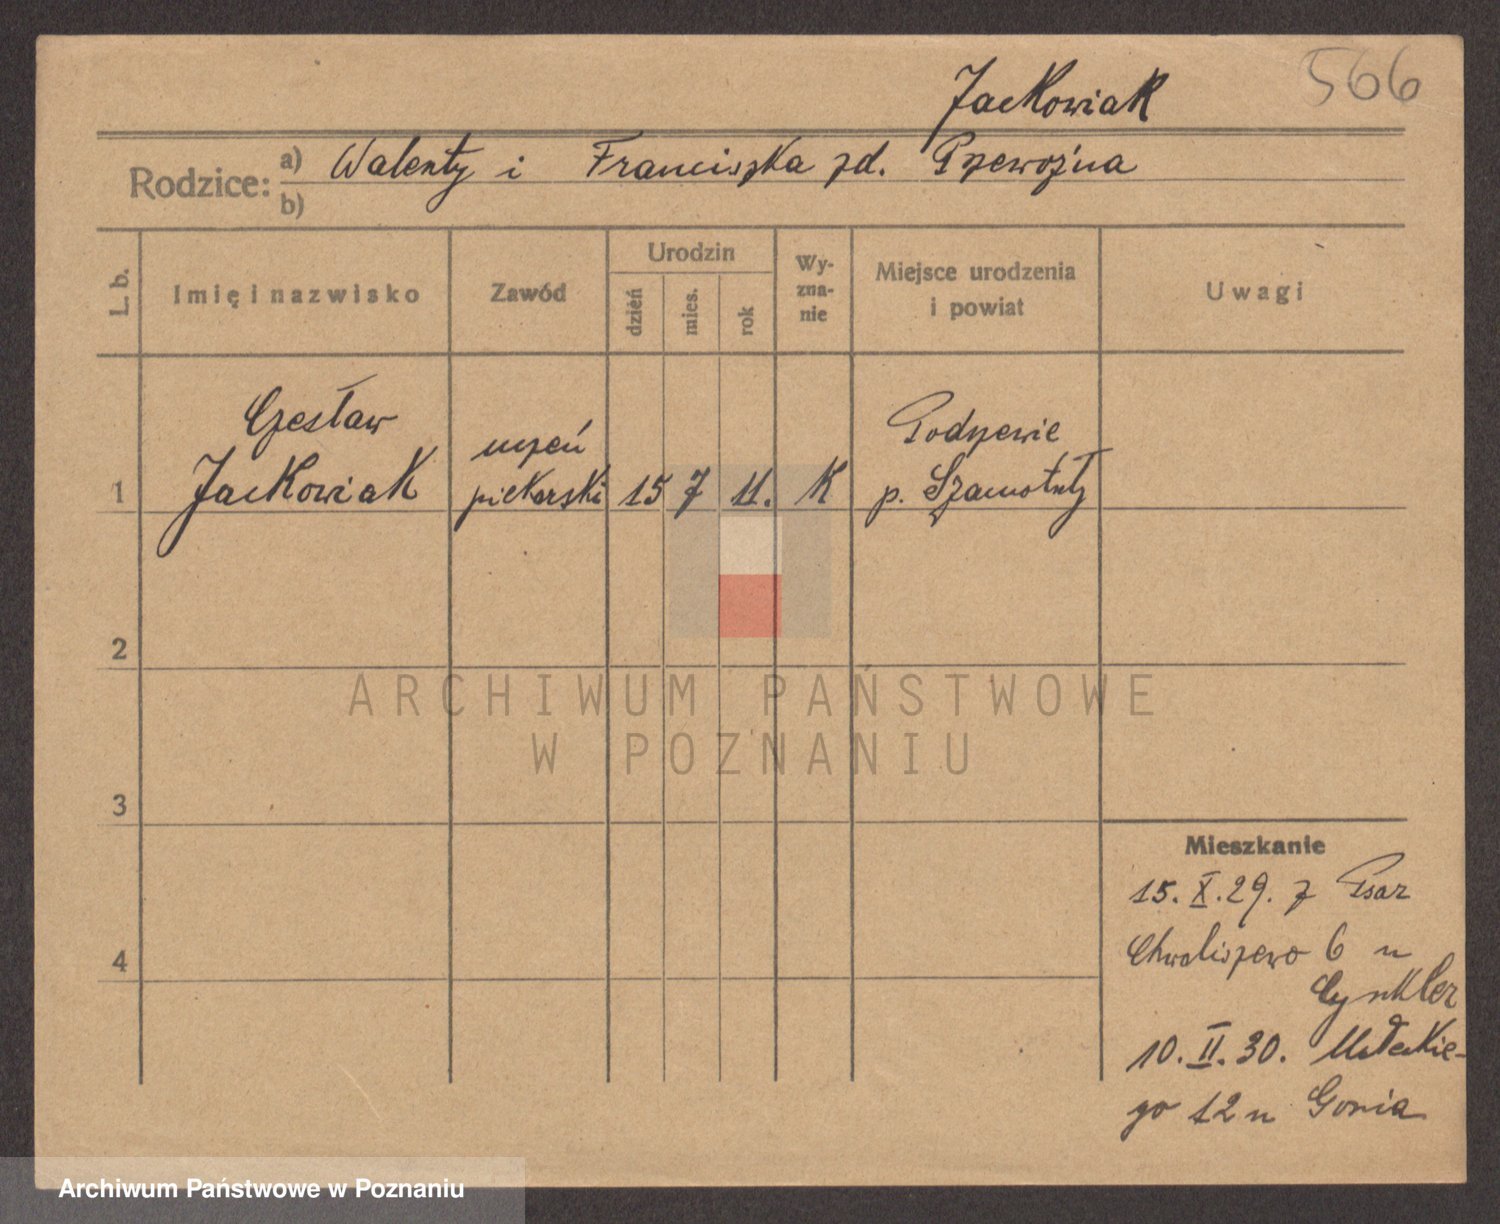 566
Jackowiak
Rodzice: a) Walenty i Franciszka zd. Przewoźna
b)
L. b.
Imię i nazwisko
Zawód
Urodzin
dzień
mies.
rok
Wy-
zna-
nie
Miejsce urodzenia
i powiat
Uwagi
Czesław
Jackowiak
uczeń
piekarski
1
15 7 11. K
Podrzewie
p. Szamotuły
2
3
4
ARCHIWUM PAŃSTWOWE
W POZNANIU
Mieszkanie
15. X. 29. z Psar
Chwaliszewo 6 u
Cynkler
10. II. 30. Małeckie-
go 12 u Gonia
Archiwum Państwowe w Poznaniu